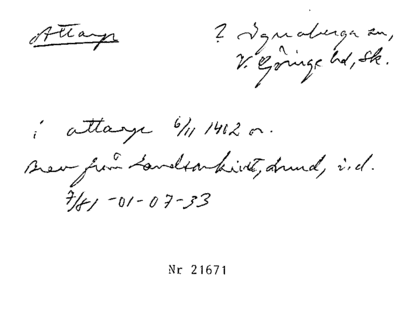 Attarp ? Ignaberga sn,
V. Göinge hd, Sk.
i attarpe 6/11 1462 or.
Brev från Landsarkivet, Lund, i.d.
7/81 -01-07-33
Nr 21671